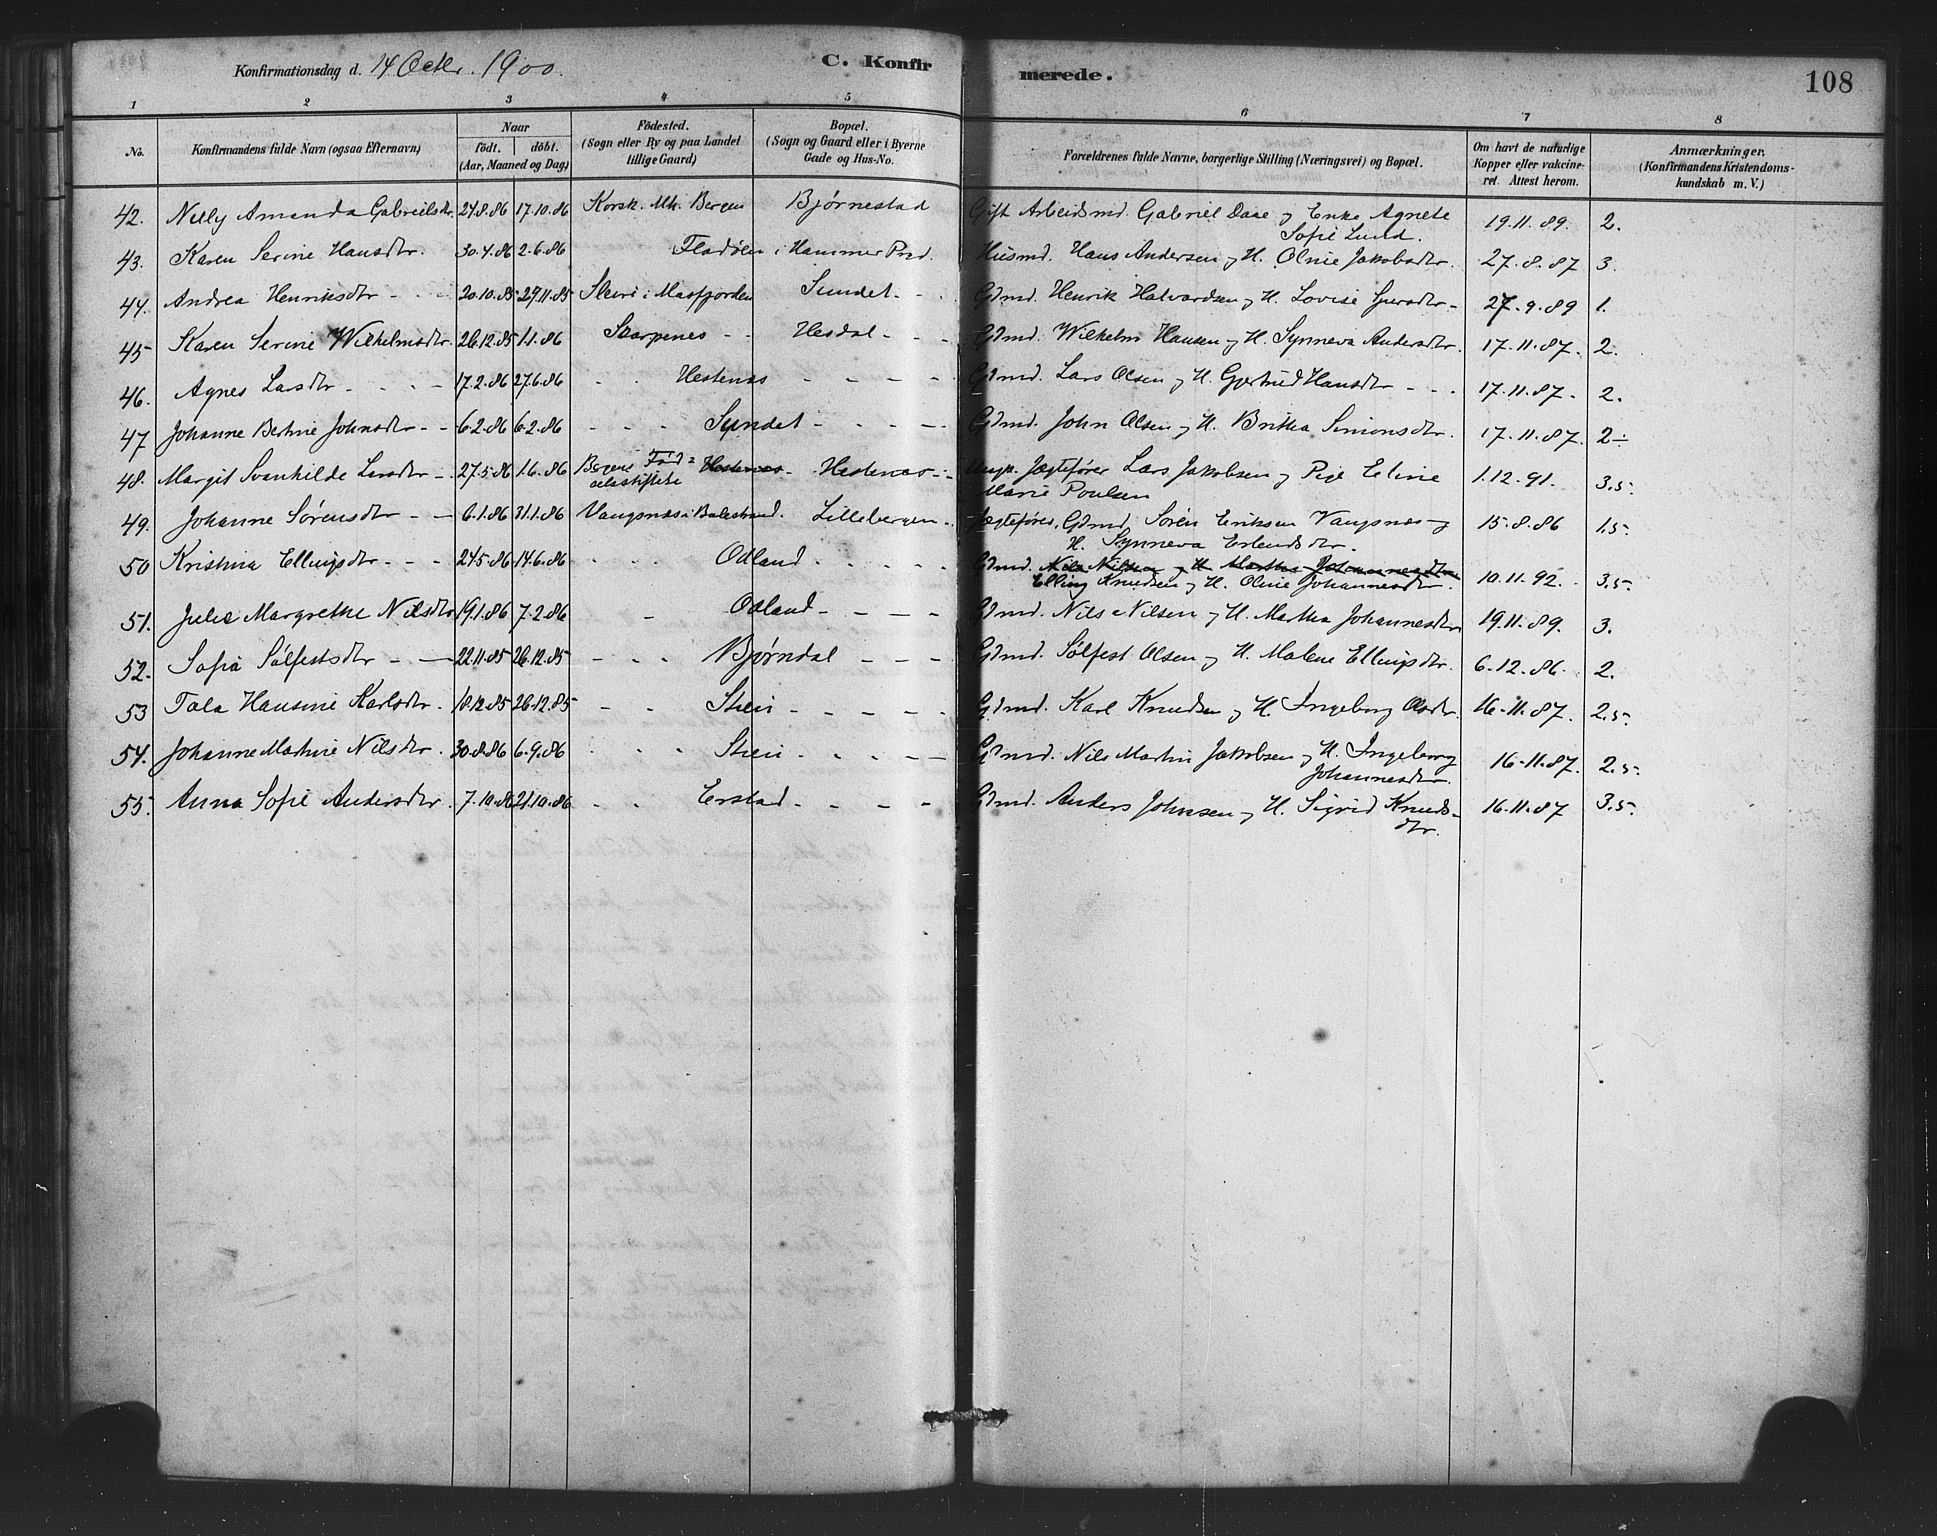 Konfirmationsdag d. 14 Octbr. 1900. C. Konfirmerede. 108
1 2 3 4 5 6 7 8
No. Konfirmandens fulde Navn (ogsaa Efternavn) Naar födt. döbt. (Aar, Maaned og Dag) Födested. (Sogn eller By og paa Landet tillige Gaard) Bopæl. (Sogn og Gaard eller i Byerne Gade og Hus-No. Forældrenes fulde Navne, borgerlige Stilling (Næringsvei) og Bopæl. Om havt de naturlige Kopper eller vakcineret. Attest herom. Anmærkninger. (Konfirmandens Kristendomskundskab m. V.)
42. Nelly Amanda Gabrielsdtr. 24.8.86 17.10.86 Korsk. Mh. Bergen Bjørnestad Gift Arbeidsmd. Gabriel Daae og Enke Agnete 19.11.89. 2.
Sofie Lund.
43. Karen Serine Hansdtr. 30.4.86 2.6.86 Fladöen i Hammer Prd. Husmd. Hans Andersen og H. Oline Jakobsdtr. 27.8.87 3.
44. Andrea Henriksdtr - - - 20.10.85 29.11.85 Steiri i Masfjorden Sundet - - Gdmd. Henrik Halvardsen og H. Lovise Iversdtr - 27.9.89 1.
45 Karen Serine Wilhelmsdtr. 26.12.85 1.1.86 Skarpenes - - Hesdal - - - Gdmd. Wilhelm Hansen og H. Synneva Andersdtr. 17.11.87. 2.
46. Agnes Lasdtr - - - - 17.2.86 27.6.86 - - Hestenæs - - - - Gdmd. Lars Olsen og H. Gjertrud Hansdtr - - - 17.11.87. 2.
47 Johanne Bertine Johnsdtr - - 6.2.86 6.2.86 - - - Syndet - - - - - Gdmd. John Olsen og H. Britha Simonsdtr. 17.11.87. 2÷
48. Margit Svanhilde Larsdtr - - 27.5.86 1.6.86 Bergens Föd- Hestenæs - Hestenæs - - Ungk. Jægtefører Lars Jakobsen og Pige Eline 1.12.91. 3.5.
selsstiftelse Marie Poulsen
49. Johanne Sørensdtr - - 6.1.86 31.1.86 Vangsnæs i Balestrand. Lillebergen - Jægtefører, Gdmd. Sören Eriksen Vangsnæs og 15.8.86 1.5.
H. Synneva Erlendsdtr.
50 Kristina Ellingsdtr - - 24.5.86 14.6.86 - - - Odland - - - - - Gdmd. Nils Nilsen og H. Martha Johannesdtr
Elling Knudsen og H. Oline Johannesdtr. 10.11.92. 3.5.
51. Julie Margrethe Nilsdtr 19.1.86 7.2.86 - Odland - - - - Gdmd. Nils Nilsen og H. Martha Johannesdtr 19.11.89. 3.
52. Sofia Sølfestsdtr - - 22.11.85 26.12.85 - - - Bjørndal - - - - Gdmd. Sølfest Olsen og H. Malene Ellingsdtr. 6.12.86. 2.
53 Tala Hansine Karlsdtr. 18.12.85 26.12.85 - - Steiri - - - - - Gdmd. Karl Knudsen og H. Ingeborg Olsdtr. 16.11.87. 2.5.
54. Johanne Martine Nilsdtr. 30.8.86 6.9.86 - - - Steiri - - - - - Gdmd. Nils Martin Jakobsen og H. Ingeborg 16.11.87. 2.5.
Johannesdtr
55. Anna Sofie Andersdtr. 7.10.86 21.10.86 - - Erstad - - - - Gdmd. Anders Johnsen og H. Sigrid Knuds- 16.11.87 3.5.
dtr.